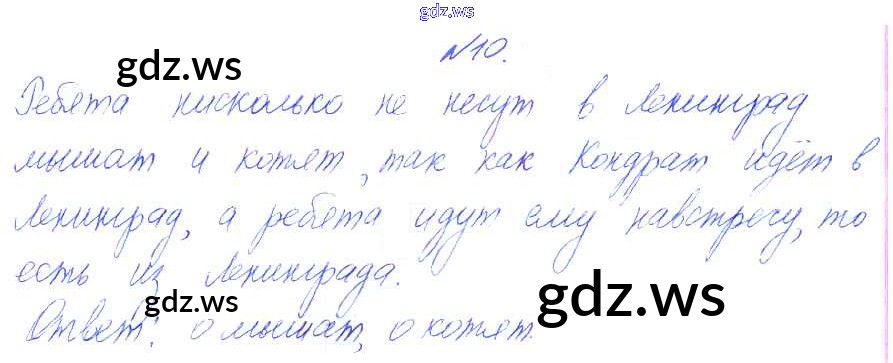 gdz.ws
№10.
gdz.ws
Ребята нисколько не несут в Ленинград
мышат и котят, так как Кондрат идёт в
Ленинград, а ребята идут ему навстречу, то
есть из Ленинграда.
gdz.ws
gdz.ws
Ответ: 0 мышат, 0 котят.